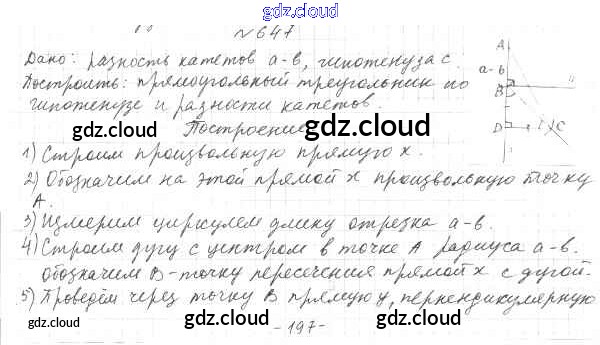 gdz.cloud
№647
Дано: разность катетов а-в, гипотенуза с.
Построить: прямоугольный треугольник по
гипотенузе и разности катетов.
gdz.cloud gdz.cloud
Построение
1) Строим произвольную прямую х.
2) Обозначим на этой прямой х произвольную точку
А.
3) Измерим циркулем длину отрезка а-в.
4) Строим дугу с центром в точке А радиуса а-в.
обозначим В-точку пересечения прямой х с дугой.
5) Проведём через точку В прямую у, перпендикулярную
gdz.cloud gdz.cloud gdz.cloud
-197-
A
а-в
B
D
C